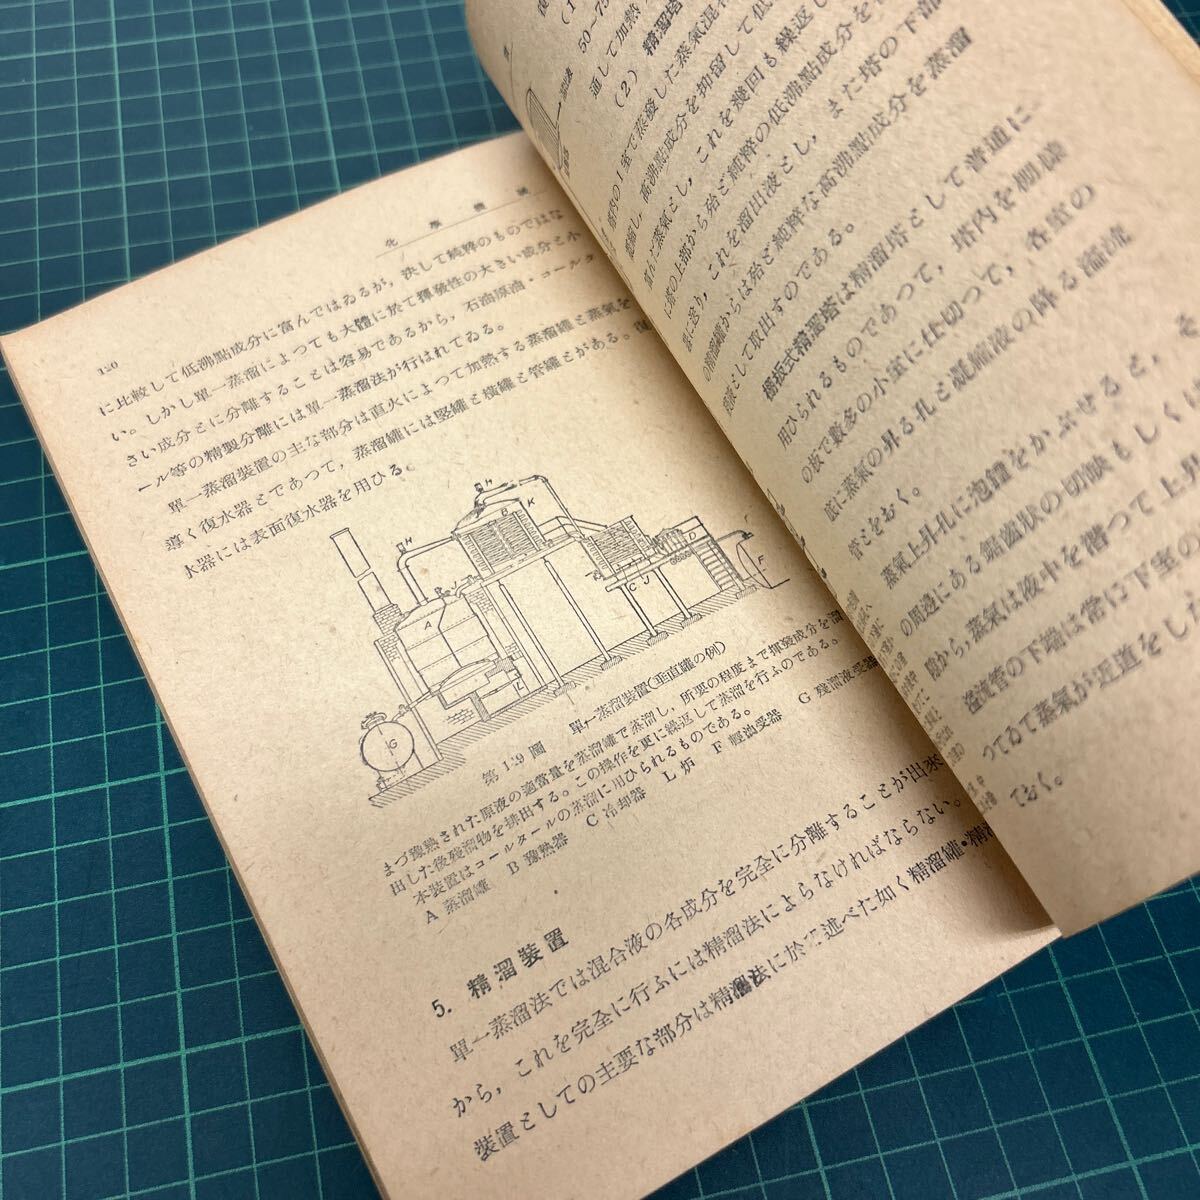 120
化學機械
に比較して低沸點成分に富んではゐるが，決して純粹のものではな
い。しかし單一蒸溜によつても大體に於て揮發性の大きい成分と小
さい成分とに分離することは容易であるから，石油原油・コールタ
ール等の精製分離には單一蒸溜法が行はれてゐる。
單一蒸溜裝置の主な部分は直火によつて加熱する蒸溜罐と蒸氣を
導く復水器とであつて，蒸溜罐には竪罐と橫罐と管罐とがある。復
水器には表面復水器を用ひる。
H
H
K
B
A
C
J
D
F
L
G
第 119 圖 單一蒸溜裝置(垂直罐の例)
まづ豫熱された原液の適當量を蒸溜罐で蒸溜し，所要の程度まで揮發成分を溜
出した後殘溜物を排出する。この操作を更に繰返して蒸溜を行ふのである。
本裝置はコールタールの蒸溜に用ひられるものである。
A 蒸溜罐 B 豫熱器 C 冷却器 L 炉 F 輕油受器 G 殘溜液受器
5. 精溜裝置
單一蒸溜法では混合液の各成分を完全に分離することが出來
から，これを完全に行ふには精溜法によらなければならない。
裝置としての主要な部分は精溜法に於て述べた如く精溜罐・精
50~75
通して加熱
(2) 精溜塔
の1室で蒸發した蒸氣混
し，高沸點成分を抑留して低
んだ蒸氣とし，これを幾回も繰返し
に塔の上部から殆ど純粹の低沸點成分を
に送り，これを溜出液とし，また塔の下部
の精溜罐からは殆ど純粹な高沸點成分を蒸溜
液として取出すのである。
棚板式精溜塔は精溜塔として普通に
用ひられるものであつて，塔內を棚樣
の板で數多の小室に仕切つて，各室の
底に蒸氣の昇る孔と凝縮液の降る溢流
管とをおく。
蒸氣上昇孔に泡鐘をかぶせると，そ
の周邊にある鋸齒狀の切缺もしくは
段から，蒸氣は液中を潛つて上昇
溢流管の下端は常に下室の
つてゐて蒸氣が近道をした
ておく。